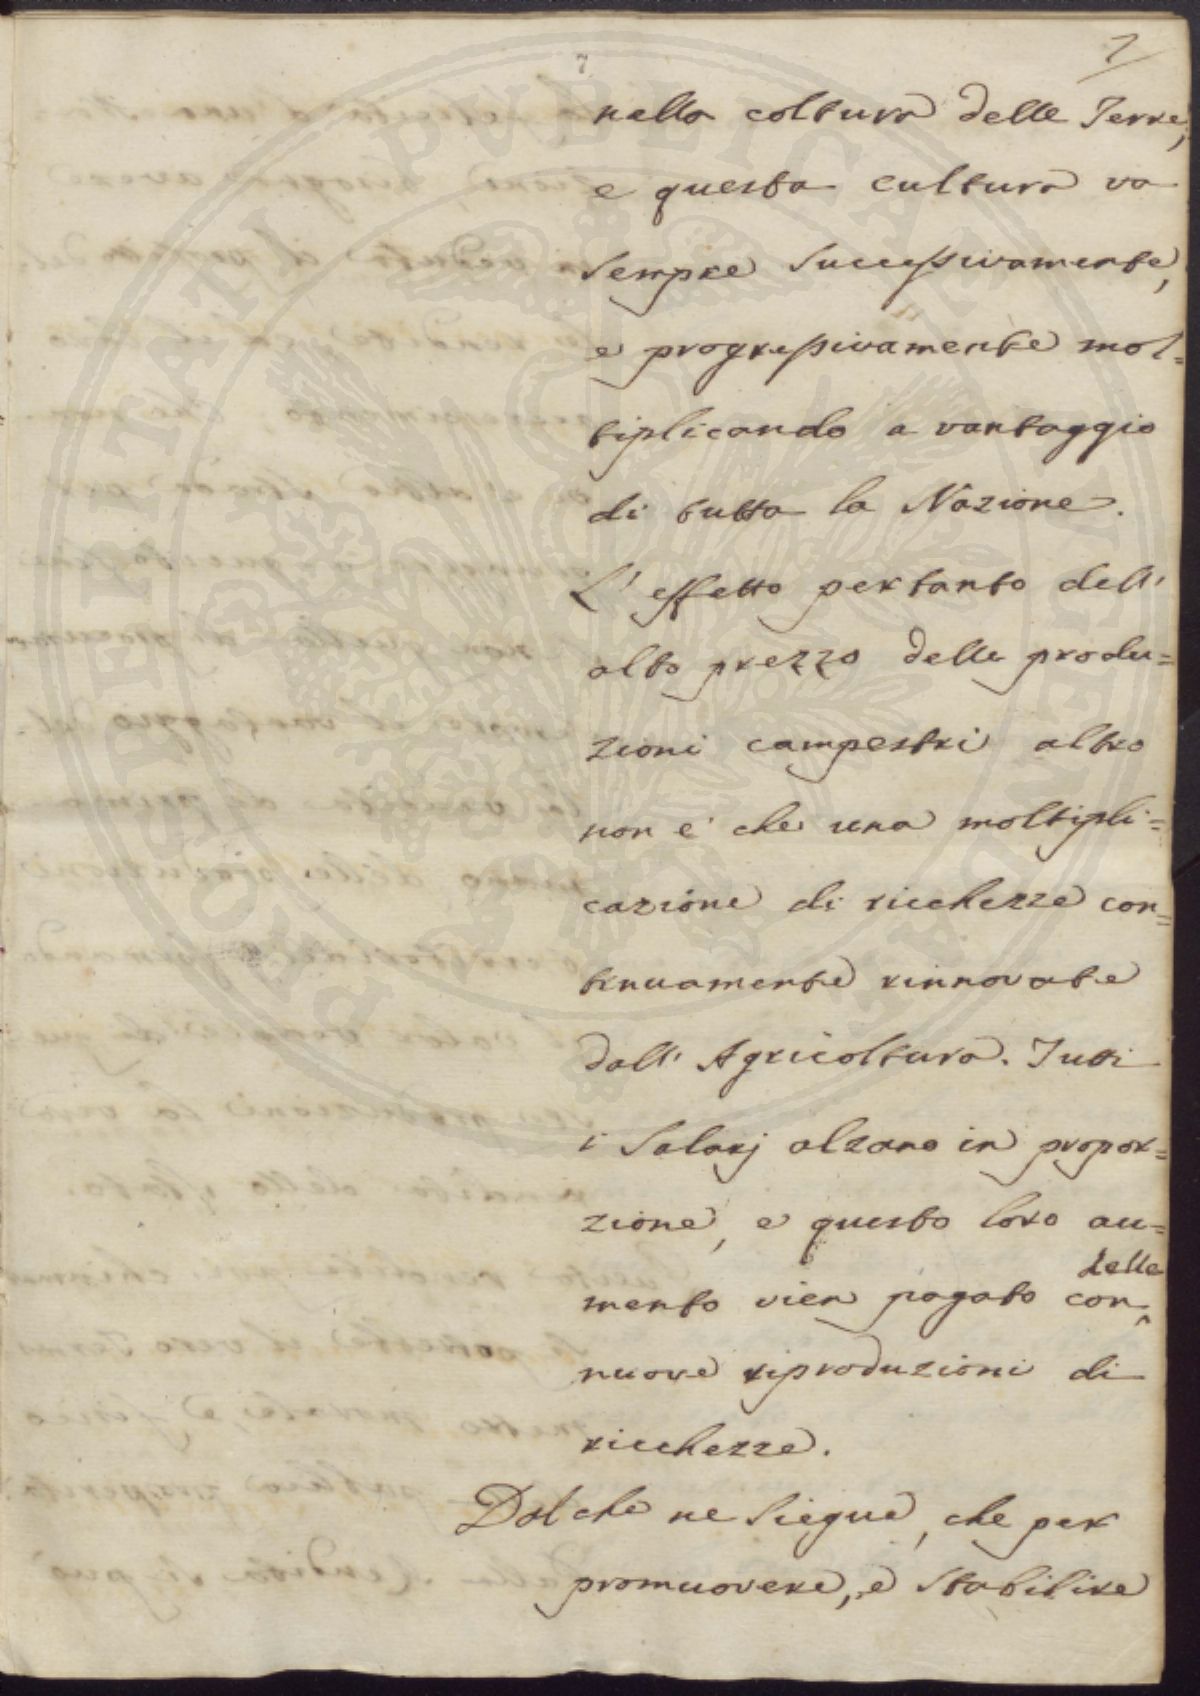 7
7
nella coltura delle Terre,
e questa cultura va
sempre successivamente,
e progressivamente mol=
tiplicando a vantaggio
di tutta la Nazione.
L' effetto pertanto dell'
alto prezzo delle produ=
zioni campestri altro
non e' che una moltipli=
cazione di ricchezze con=
tinuamente rinnovate
dall' Agricoltura. Tutti
i Salarj alzano in propor=
zione, e questo loro au=
delle
mento vien pagato con
nuove riproduzioni di
ricchezze.
Dal che ne siegue, che per
promuovere, e stabilire
PROSPERITATI PVBLICAE AVGENDAE